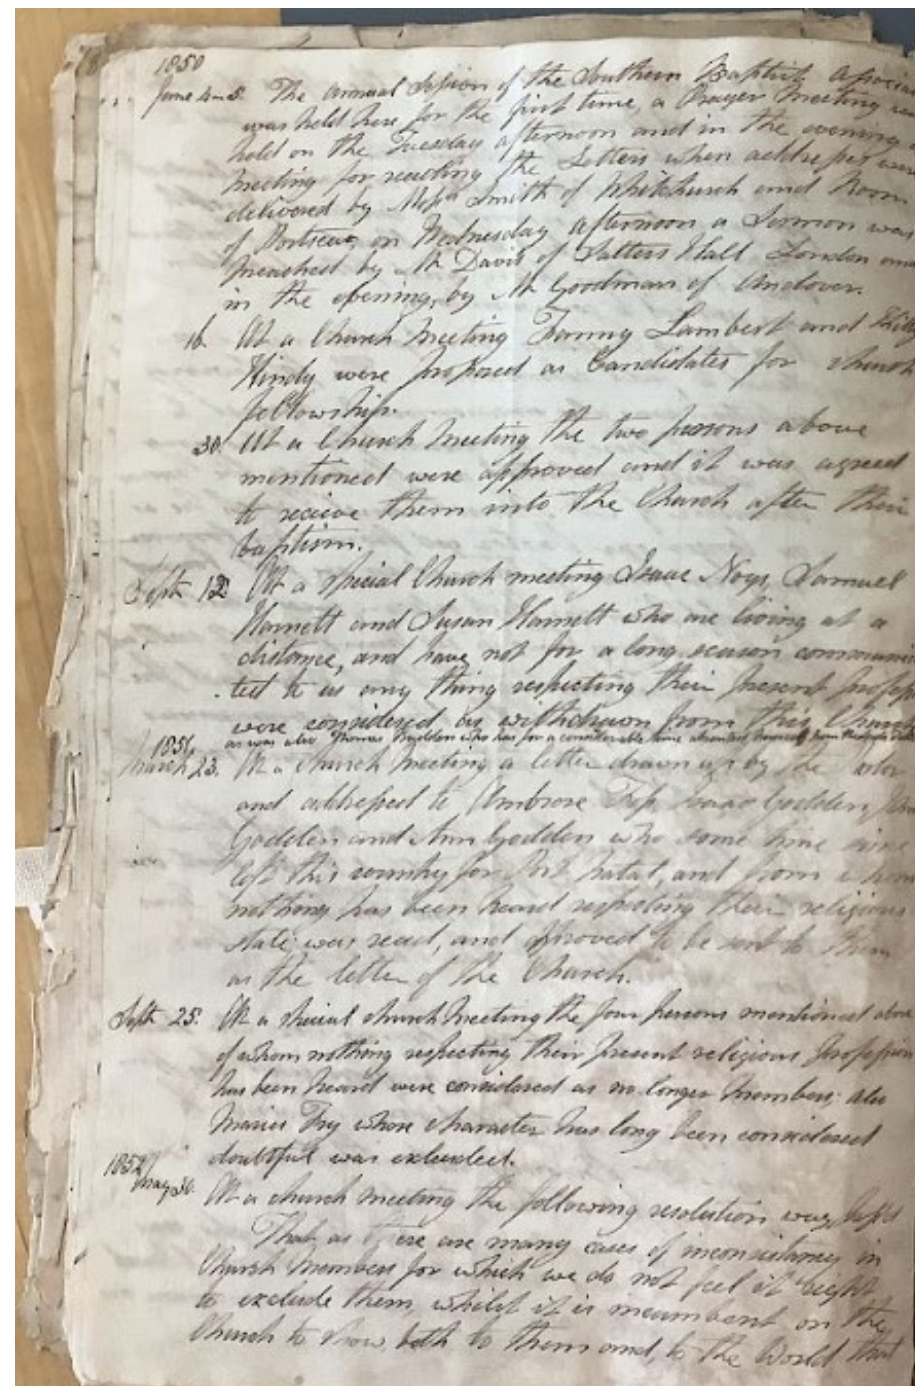 1850
June 4-5. The annual Session of the Southern Baptist
was held here for the first time, a Prayer Meeting
held on the Tuesday afternoon and in the evening
meeting for reading the Letters when addresses were
delivered by Messrs Smith of Whitchurch and Room
of Portsea, on Wednesday afternoon a Sermon was
preached by Mr Davis of Salters Hall London and
in the evening, by Mr Goodman of Andover.
16. At a Church Meeting Fanny Lambert and
Hindy were proposed as Candidates for church
fellowship.
30. At a Church Meeting the two persons above
mentioned were approved and it was agreed
to recieve them into the Church after their
baptism.
Septr 12 At a special Church meeting Isaac Noys, Samuel
Harnett and Susan Harnett who are living at a
distance, and have not for a long season communi
ted to us any thing respecting their present
were considered as withdrawn from this Church
as was also Thomas who has for a considerable time absented himself from
1851
March 23. At a church meeting a letter drawn up by the
and addressed to Ambrose Isaac Godden,
Godden and Ann Godden who some time since
left this country for Port Natal, and from whom
nothing has been heard respecting their religious
state; was read, and approved to be sent to them
as the letter of the Church.
Septr 25. At a special church Meeting the four persons mentioned above
of whom nothing respecting their present religious profession
has been heard were considered as no longer members; also
Maria Fry whose character has long been considered
doubtful was excluded.
1852
May 30. At a church meeting the following resolution was
That as there are many cases of inconsistency in
Church Members for which we do not feel it right
to exclude them, whilst it is incumbent on the
Church to show, both to them and, to the World that